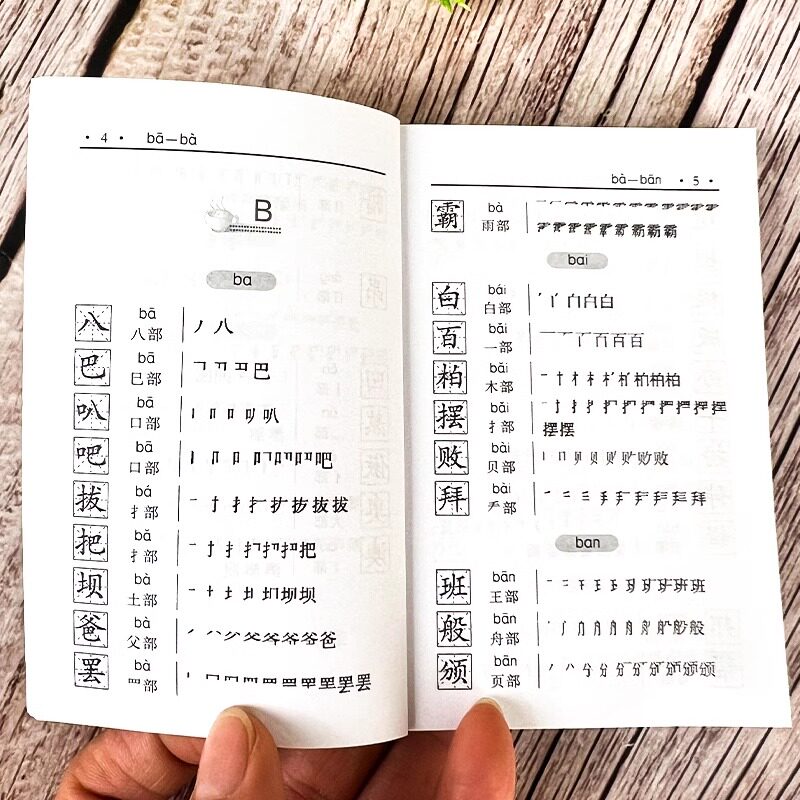 • 4 • bā—bà
B
ba
八 bā 八部 丿 八
巴 bā 巳部 巴
叭 bā 口部 叭
吧 bā 口部 吧
拔 bá 扌部 拔
把 bǎ 扌部 把
坝 bà 土部 坝
爸 bà 父部 爸
罢 bà 罒部 罢
bà—bān • 5 •
霸 bà 雨部 霸
bai
白 bái 白部 白
百 bǎi 一部 百
柏 bǎi 木部 柏
摆 bǎi 扌部
摆
败 bài 贝部 败
拜 bài 龵部 拜
ban
班 bān 王部 班
般 bān 舟部 般
颁 bān 页部 颁